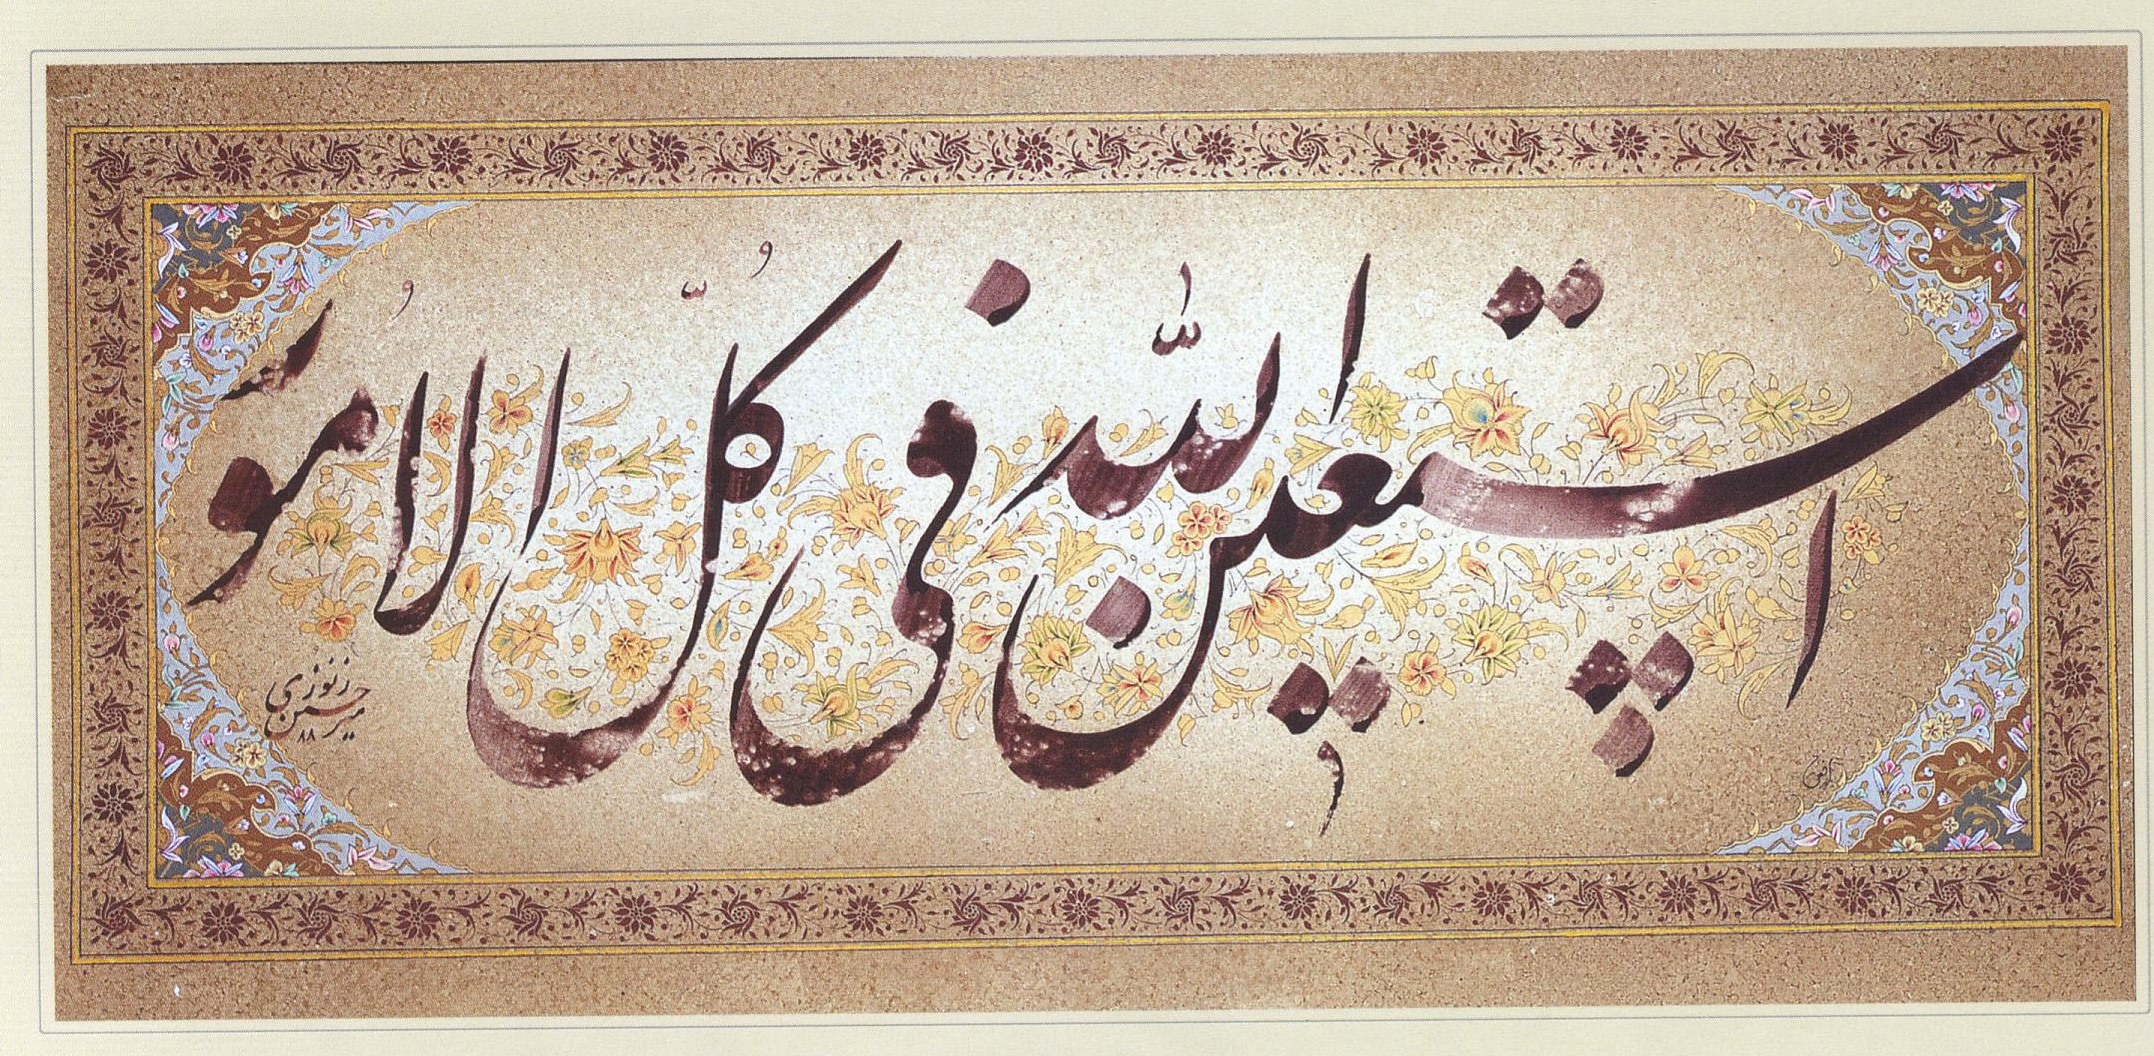 استعین اللہ فی کلّ الامور
میرحسن زنوزی
۸۸